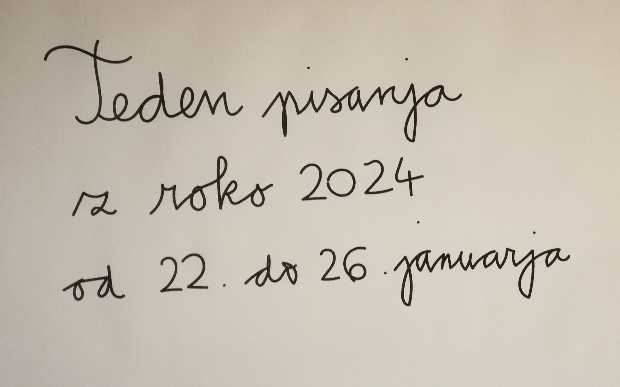 Teden pisanja
z roko 2024
od 22. do 26. januarja